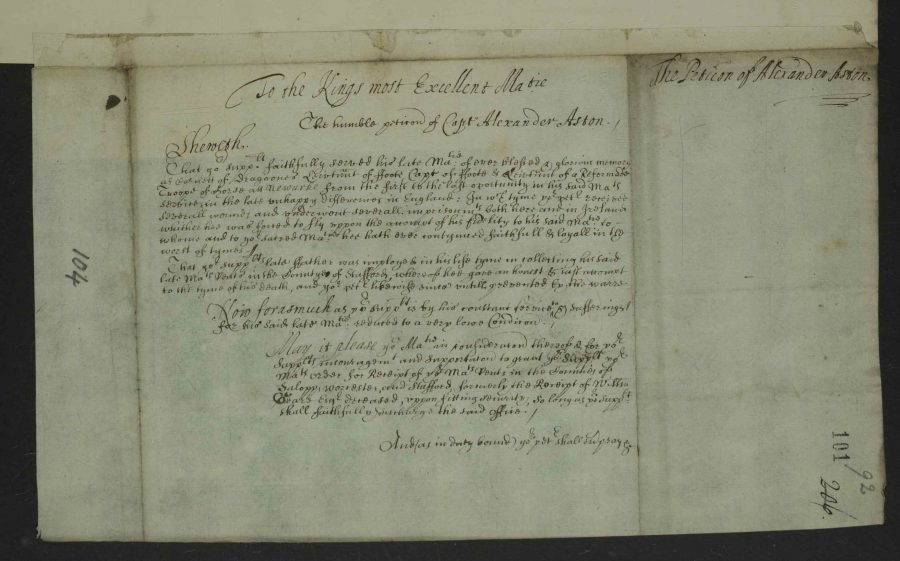 To the Kings most Excellent Matie
The humble peticon of Capt Alexander Aston.
The Peticon of Alexander Aston.
Sheweth.
That yor suppt faithfully served his late Matie of ever blessed & glorious memory
as Cornett of Dragoones Leivtnnt of ffoote Capt of ffoote & Leivtnnt of a Reformado
Troope of Horse att Newarke from the first to the last oportunity in his said Mats
service in the late unhappy differences in England: In wch tyme yor petr received
severall wounds and underwent severall imprisonmts both here and in Ireland
whither hee was forced to fly uppon the accompt of his fidelity to his said Matie to
whome and to yor sacred Matie hee hath ever contynued faithfull & loyall in the
worst of tymes
That yor suppts late ffather was imployed in his life tyme in collecting his said
late Mats Rents in the County of Stafford, whereof hee gave an honest & just accompt
to the tyme of his death, and yor petr likewise since untill prevented by the warre.
Now forasmuch as yor suppt is by his constant service & sufferings
for his said late Matie reduced to a very lowe Condicon.
May it please yor Matie in consideracon thereof & for yor
suppts incouragemt and supportacon to grant yor suppt yor
Mats order for Receipt of yor Mats Rents in the Counties of
Salopp, Worcester, and Stafford, formerly the Receipt of Willm
Esqr deceased, uppon fitting security, so long as yor suppt
shall faithfully discharge the said office.
And (as in duty bound) yor petr shall pray &c
104
101
92
206.